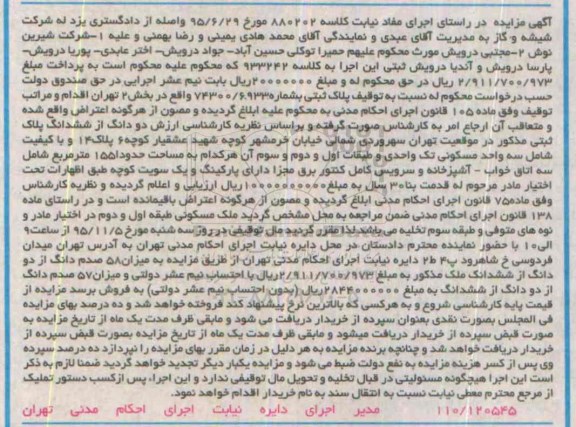 آگهی مزایده در راستای اجرای مفاد نیابت کلاسه ۸۸۰۲۰۲ مورخ ۹۵/۶/۲۹ واصله از دادگستری یزد له شرکت
شیشه و گاز به مدیریت آقای عبدی و نمایندگی آقای محمد هادی یمینی و رضا بهمنی و علیه ۱-شرکت شیرین
نوش ۲-مجتبی درویش مورث محکوم علیهم حمیرا توکلی حسین آباد- جواد درویش- اختر عابدی- پوریا درویش-
پارسا درویش و آندیا درویش ثبتی این اجرا به کلاسه ۹۳۳۲۴۲ که محکوم علیه محکوم است به پرداخت مبلغ
۲/۹۱۱/۷۰۰/۹۷۳ ریال در حق محکوم له و مبلغ ۲۰۰۰۰۰۰۰ریال بابت نیم عشر اجرایی در حق صندوق دولت
حسب درخواست محکوم له نسبت به توقیف پلاک ثبتی بشماره۷۴۳۰۰/۶۹۳۳ واقع در بخش۲ تهران اقدام و مراتب
توقیف وفق ماده ۱۰۵ قانون اجرای احکام مدنی به محکوم علیه ابلاغ گردیده و مصون از هرگونه اعتراض واقع شده
و متعاقب آن ارجاع امر به کارشناس صورت گرفته و براساس نظریه کارشناسی ارزش دو دانگ از ششدانگ پلاک
ثبتی مذکور در موقعیت تهران سهروردی شمالی خیابان خرمشهر کوچه شهید عشقیار کوچه۶ پلاک۱۴ و با کیفیت
شامل سه واحد مسکونی تک واحدی و طبقات اول و دوم و سوم آن هرکدام به مساحت حدودا۱۵۵ مترمربع شامل
سه اتاق خواب - آشپزخانه و سرویس کامل کنتور برق مجزا دارای پارکینگ و یک سویت کوچه طبق اظهارات تحت
اختیار مادر مرحوم له قدمت بنا۳۰ سال به مبلغ ریال ارزیابی و اعلام گردیده و نظریه کارشناس
وفق ماده۷۵ قانون اجرای احکام مدنی ابلاغ گردیده و مصون از هرگونه اعتراض باقیمانده است و در راستای ماده
۱۳۸ قانون اجرای احکام مدنی ضمن مراجعه به محل مشخص گردید ملک مسکونی طبقه اول و دوم در اختیار مادر و
نوه های متوفی و طبقه سوم تخلیه می باشد لذا مقرر گردید مال توقیفی در روز سه شنبه مورخ ۹۵/۱۱/۵ از ساعت۹
الی۱۰ با حضور نماینده محترم دادستان در محل دایره نیابت اجرای احکام مدنی تهران به آدرس تهران میدان
فردوسی خ شاهرود پ۴ ط۲ دایره نیابت اجرای احکام مدنی تهران از طریق مزایده به میزان۵۸ صدم دانگ از دو
دانگ از ششدانگ ملک مذکور به مبلغ ۲/۹۱۱/۷۰۰/۹۷۳ریال با احتساب نیم عشر دولتی و میزان۵۷ صدم دانگ
از دو دانگ از ششدانگ به مبلغ ۲۸۴۴۰۰۰۰۰۰ریال (بدون احتساب نیم عشر دولتی) به فروش برسد مزایده از
قیمت پایه کارشناسی شروع و به هرکسی که بالاترین نرخ پیشنهاد کند فروخته خواهد شد و ده درصد بهای مزایده
فی المجلس بصورت نقدی بعنوان سپرده از خریدار دریافت می شود و مابقی ظرف مدت یک ماه از تاریخ مزایده به
صورت قبض سپرده از خریدار دریافت میشود و مابقی ظرف مدت یک ماه از تاریخ مزایده بصورت قبض سپرده از
خریدار دریافت خواهد شد و چنانچه برنده مزایده به هر دلیل در زمان مقرر بهای مزایده را نپردازد ده درصد سپرده
وی پس از کسر هزینه مزایده به نفع دولت ضبط می شود و مزایده یکبار دیگر تجدید خواهد گردید ضمنا لازم به ذکر
است این اجرا هیچگونه مسئولیتی در قبال تخلیه و تحویل مال توقیفی ندارد و این اجرا، پس ازکسب دستور تملیک
از مرجع محترم معطی نیابت نسبت به انتقال سند به نام خریدار اقدام خواهد نمود.
۱۱۰/۱۲۰۵۴۵ مدیر اجرای دایره نیابت اجرای احکام مدنی تهران